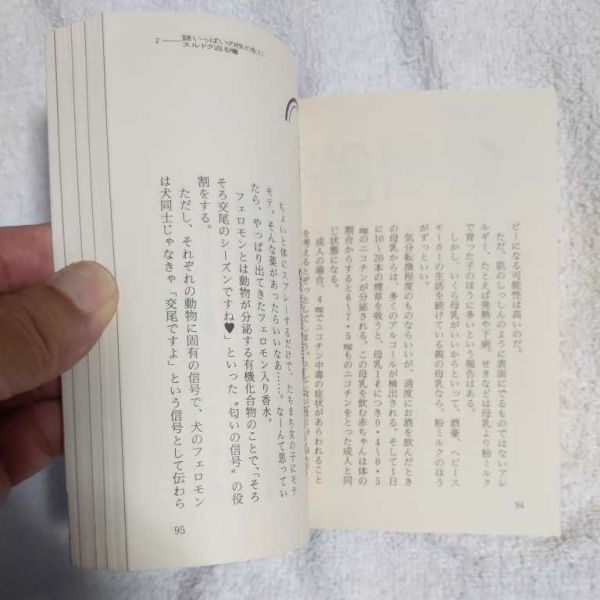 ピーになる可能性は高いのだ。
ただ、肌のしっしんのように表面にでるものではないアレ
ルギー、たとえば発熱や下痢、せきなどは母乳より粉ミルク
で育った子のほうに多いという報告はある。
しかし、いくら母乳がいいからといって、酒豪、ヘビース
モーカーの生活を続けている親の母乳なら、粉ミルクのほう
がずっといい。
気分転換程度のものならいいが、過度にお酒を飲んだとき
の母乳からは、多くのアルコールが検出される。そして1日
に10〜20本の煙草を吸うと、母乳1ℓにつき0・4〜0・5
㎎のニコチンが分泌される。この母乳を飲む赤ちゃんは体の
割合からすると6〜7・5㎎ものニコチンをとった成人と同
じ状態になる。
成人の場合、4㎎でニコチン中毒の症状があらわれること
を考えると
94
2——謎いっぱいの性と生に
エルドク迫る
ちょいと体にスプレーするだけで、たちまち女の子にモテ
モテ。そんな薬があったらいいなあ……。なーんて思ってい
たら、やっぱり出てきたフェロモン入り香水。
フェロモンとは動物が分泌する有機化合物のことで、「そろ
そろ交尾のシーズンですね♥」といった〝匂いの信号〟の役
割をする。
ただし、それぞれの動物に固有の信号で、犬のフェロモン
は犬同士じゃなきゃ「交尾ですよ」という信号として伝わら
95